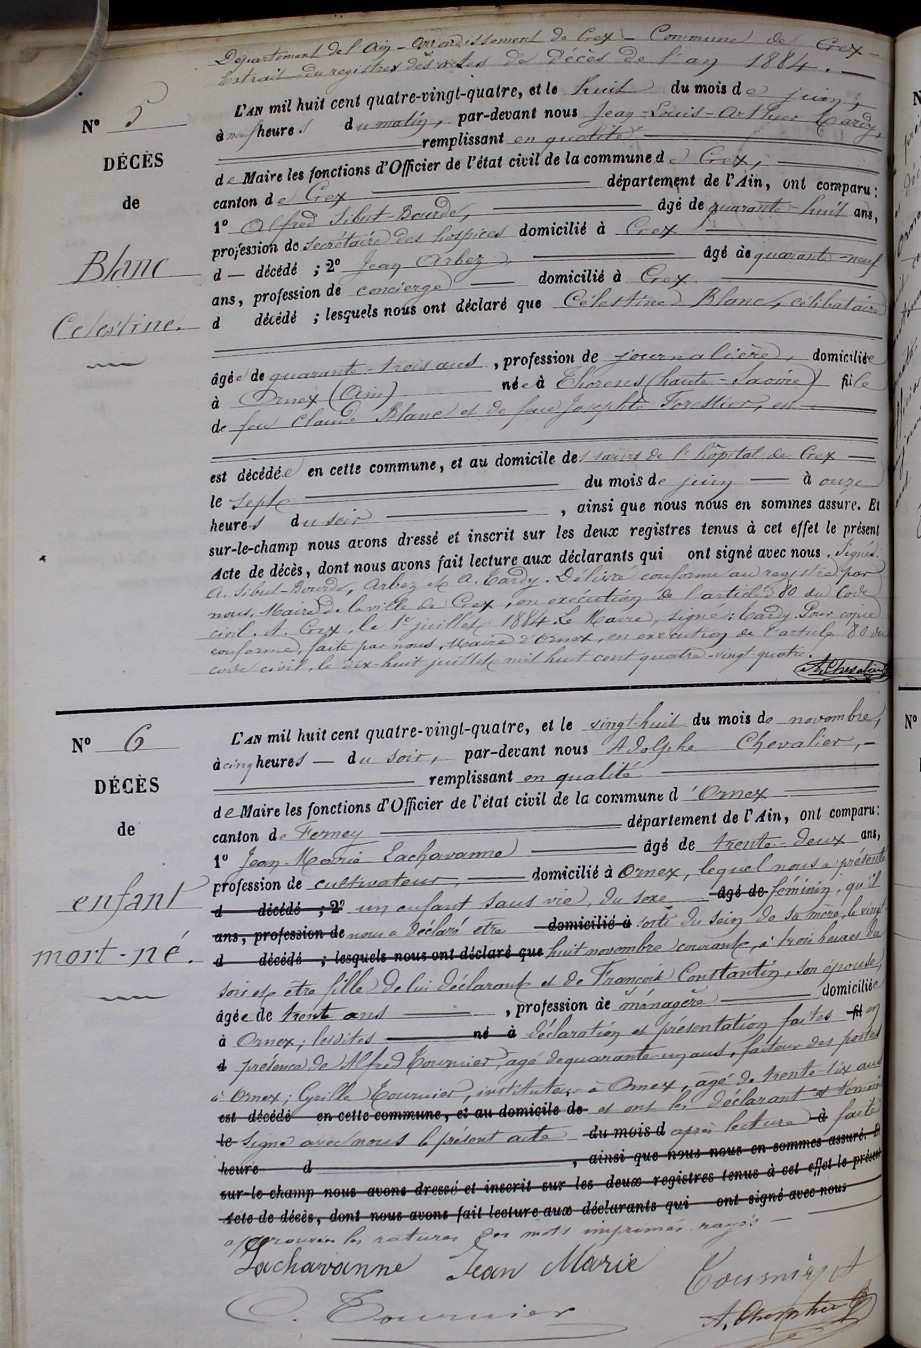 Département de l'Ain - Arrondissement de Gex - Commune de Gex -
Extrait du registre des actes de Décès de l'an 1884.
N° 5
DÉCÈS
de
Blanc
Celestine.
L'AN mil huit cent quatre-vingt-quatre, et le huit du mois de juin,
à neuf heures du matin, par-devant nous Jean-Louis-Arthur Hardy,
remplissant en qualité
de Maire les fonctions d'Officier de l'état civil de la commune de Gex,
canton de Gex département de l'Ain, ont comparu:
1° Alfred Sibut-Bourde, âgé de quarante-huit ans,
profession de secrétaire des hospices domicilié à Gex
d décédé ; 2° Jean Arbez âgé de quarante-neuf
ans, profession de concierge domicilié à Gex
d décédé ; lesquels nous ont déclaré que Célestine Blanc, célibataire
âgée de quarante-trois ans, profession de journalière, domiciliée
à Ornex (Ain) née à Thorens (haute-Savoie) fille
de feu Claude Blanc et de feue Josephte Forestier, est
est décédée en cette commune, et au domicile des sœurs de l'hôpital de Gex
le sept du mois de juin à onze
heures du soir, ainsi que nous nous en sommes assuré. Et
sur-le-champ nous avons dressé et inscrit sur les deux registres tenus à cet effet le présent
Acte de décès, dont nous avons fait lecture aux déclarants qui ont signé avec nous. Signé:
A. Sibut-Bourde, Arbez et A. Hardy. Délivré conforme au registre par
nous, Maire de la ville de Gex, en exécution de l'article 80 du Code
civil. A Gex, le 1er juillet 1884. Le Maire, signé: Hardy. Pour copie
conforme, faite par nous, Maire d'Ornex, en exécution de l'article 80 du
code civil, le dix-huit juillet mil huit cent quatre-vingt quatre.
A. Chevalier
N° 6
DÉCÈS
de
enfant
mort-né.
L'AN mil huit cent quatre-vingt-quatre, et le vingt-huit du mois de novembre,
à cinq heures du soir, par-devant nous Adolphe Chevalier,
remplissant en qualité
de Maire les fonctions d'Officier de l'état civil de la commune d'Ornex
canton de Ferney département de l'Ain, ont comparu:
1° Jean-Marie Lachavanne âgé de trente-deux ans,
profession de cultivateur, domicilié à Ornex, lequel nous a présenté
d décédé ; 2° un enfant sans vie, du sexe âgé de féminin, qu'il
ans, profession de nous a déclaré être domicilié à sorti du sein de sa mère, le vingt
d décédé ; lesquels nous ont déclaré que huit novembre courant, à trois heures du
soir et être fille de lui déclarant et de François Constantin, son épouse,
âgée de trente ans, profession de ménagère domiciliée
à Ornex; lesdites né à déclaration et présentation faites fil en
d présence de Alfred Tournier, âgé de quarante-un ans, facteur des postes
à Ornex; Tournier, instituteur à Ornex, âgé de trente-six ans
est décédé en cette commune, et au domicile de et ont les déclarant et témoins
le signé avec nous le présent acte du mois d après lecture à faite
heure d , ainsi que nous nous en sommes assuré. Et
sur-le-champ nous avons dressé et inscrit sur les deux registres tenus à cet effet le présent
Acte de décès, dont nous avons fait lecture aux déclarants qui ont signé avec nous
approuvées les ratures des mots imprimés rayés.
Lachavanne Jean Marie
Tournier A
C. Tournier
A. Chevalier